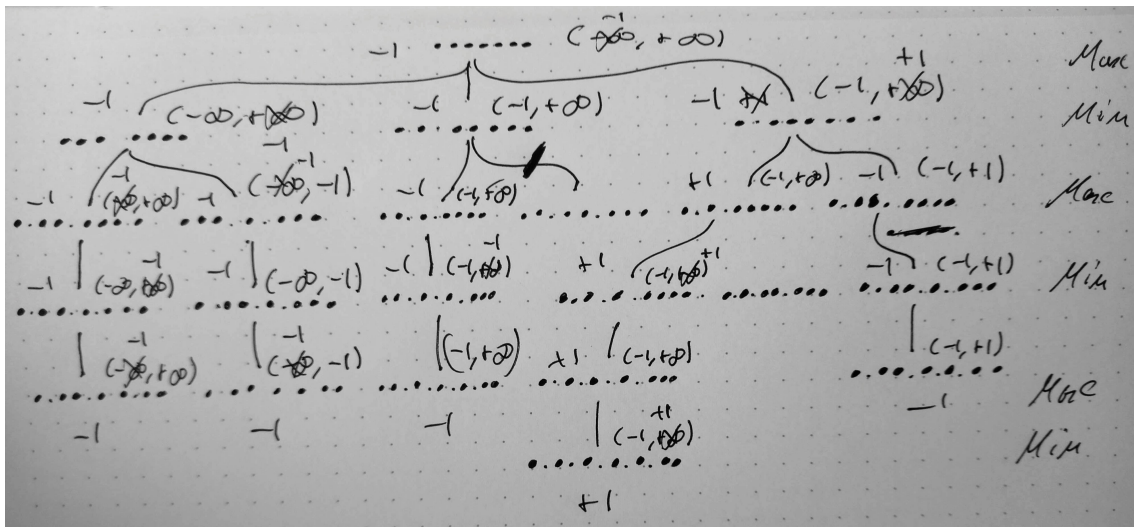 -1 (-∞, +∞) -1 Max
-1 (-∞, +∞) -1 (-1, +∞) -1 +1 (-1, +∞) +1 Min
-1 (-∞, +∞) -1 -1 (-∞, -1) -1 -1 (-1, +∞) +1 (-1, +∞) -1 (-1, +1) Max
-1 (-∞, +∞) -1 -1 (-∞, -1) -1 (-1, +∞) -1 +1 (-1, +∞) +1 -1 (-1, +1) Min
(-∞, +∞) -1 (-∞, -1) -1 (-1, +∞) +1 (-1, +∞) (-1, +1) Max
-1 -1 -1 (-1, +∞) +1 -1 Min
+1